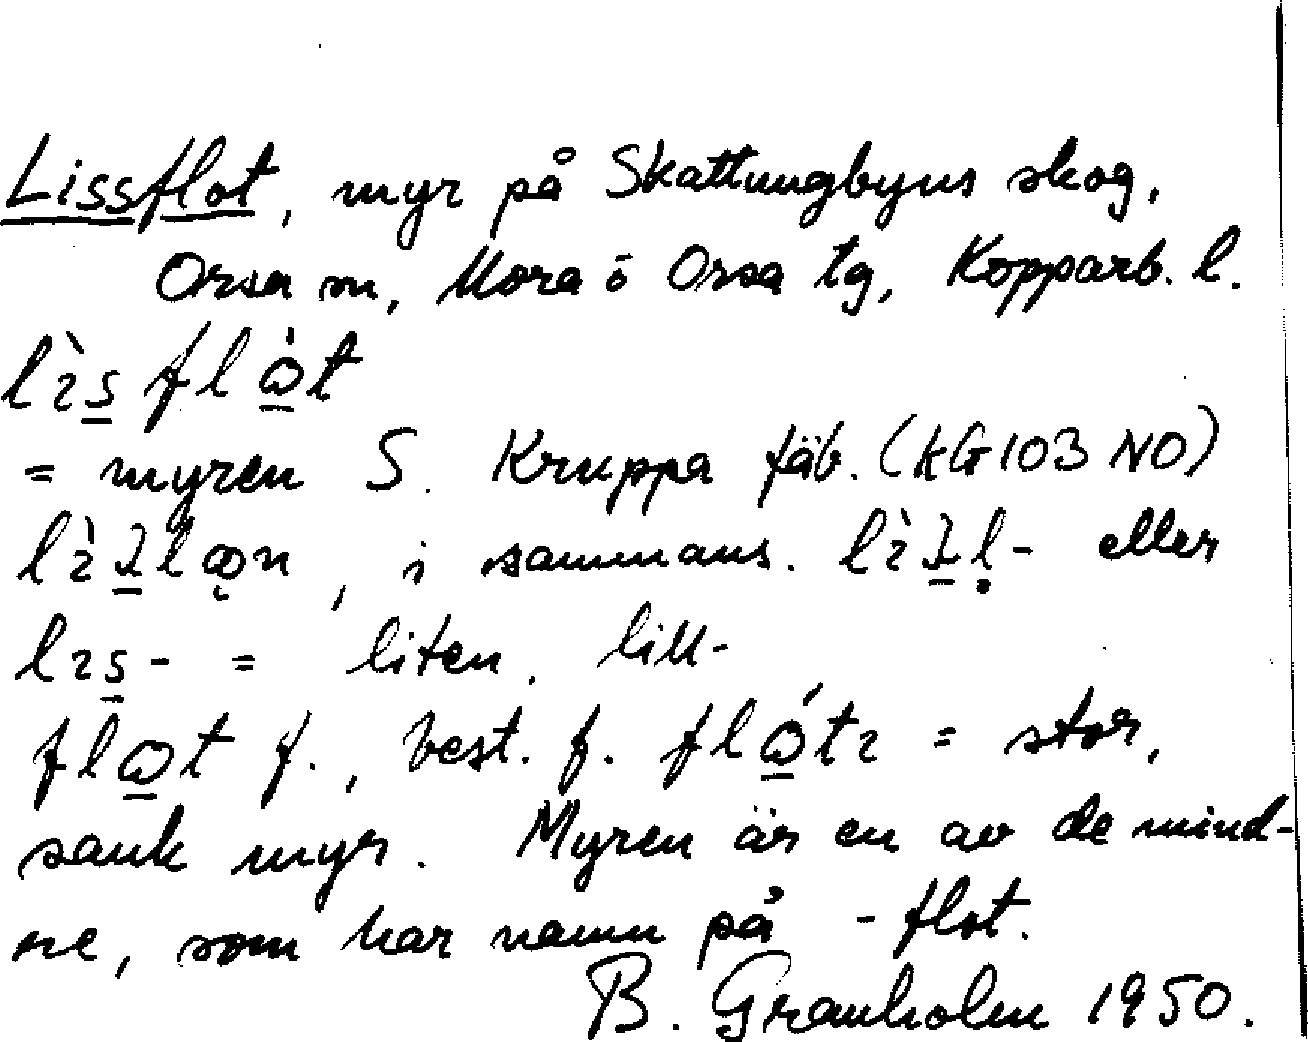 Lissflot, myr på Skattungbyns skog,
Orsa sn, Mora ö Orsa tg, Kopparb. l.
lìs flὰt
= myren S. Kruppa fäb. (kG103 NO)
, i sammans. eller
lıs- = liten, lill-
flωt f., best. f. flωtı = stor,
sank myr. Myren är en av de mind-
re, som har namn på -flot.
B. Granholm 1950.